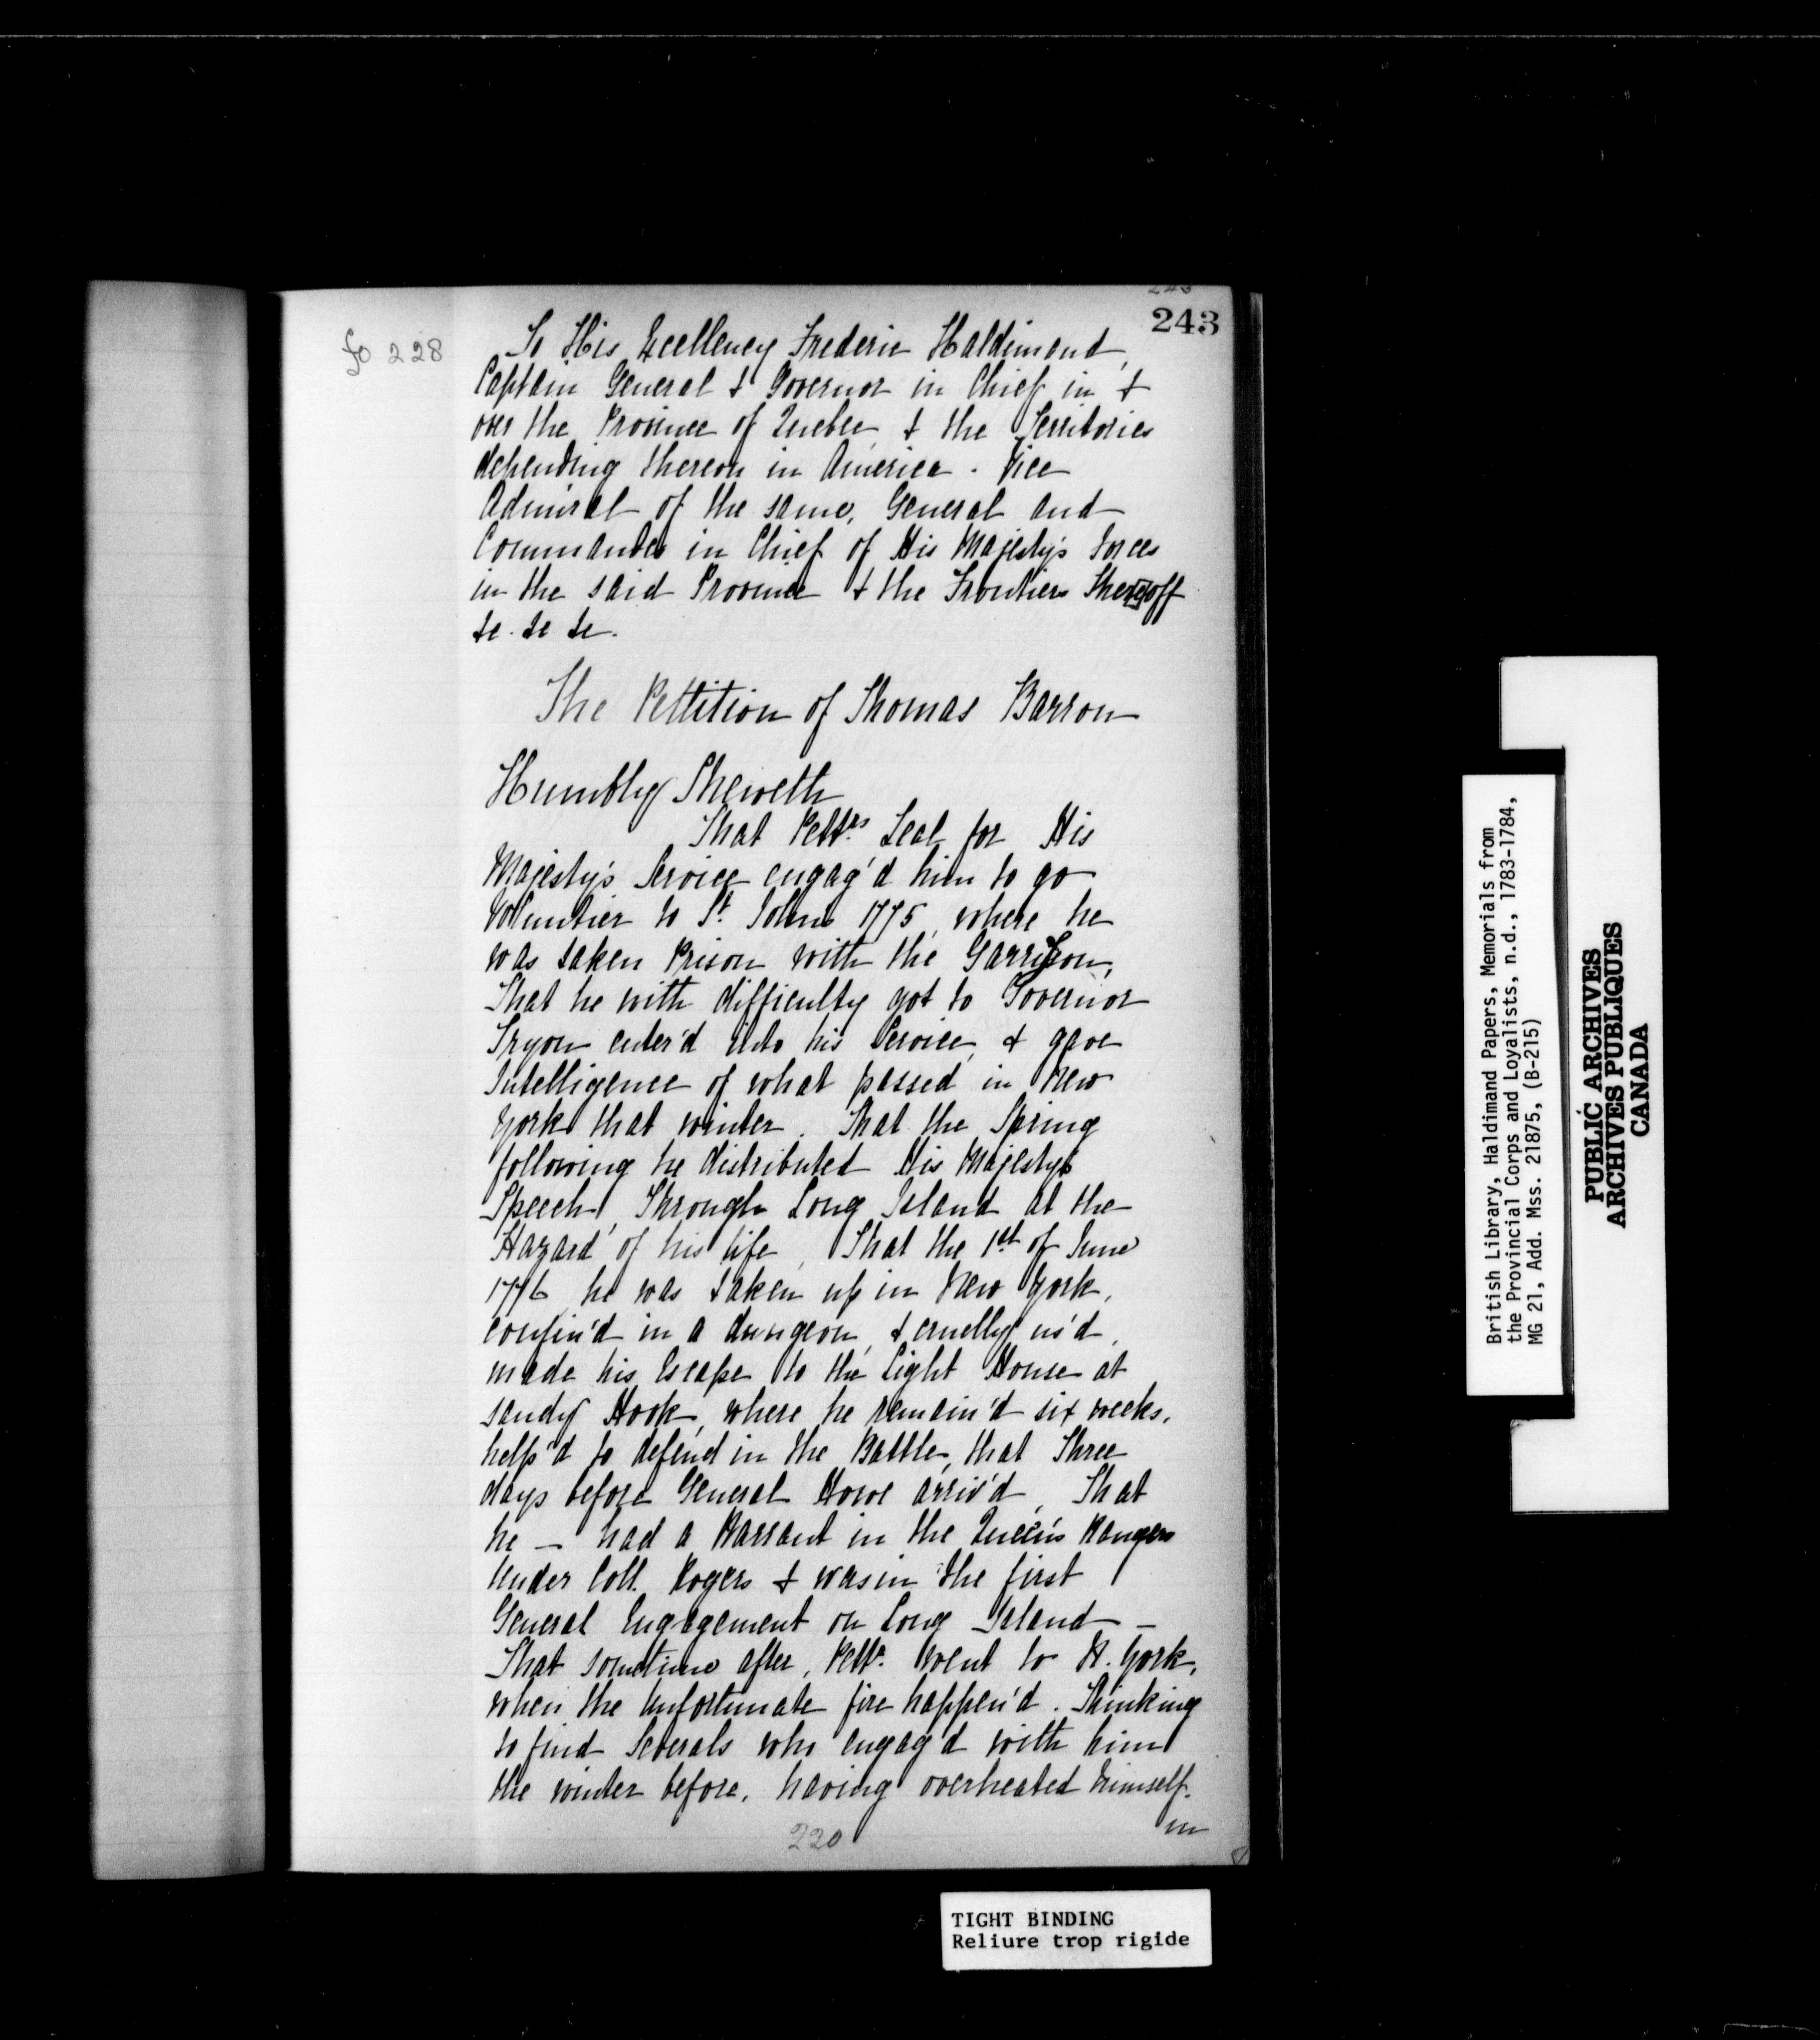 243
243
fo 228
To His Excellency Frederic Haldimand,
Captain General & Governor in Chief in &
over the Province of Quebec, & the Territories
depending thereon in America. Vice
Admiral of the same, General and
Commander in Chief of His Majesty's Forces
in the said Province & the Frontiers Thereoff
&c. &c &c.
The Pettition of Thomas Barron
Humbly Sheweth
That Pettrs Zeal for His
Majesty's Service engag'd him to go
Voluntier to St Johns 1775, where he
was taken Prison with the Garrison,
That he with difficulty got to Governor
Tryon enter'd into his Service, & gave
Intelligence of what passed in New
York that winter. That the Spring
following he distributed His Majesty's
Speech, Through Long Island at the
Hazard of his life, That the 1st of June
1776 he was taken up in New York,
confin'd in a dungeon, & cruelly us'd,
made his Escape to the Light House at
sandy Hook, where he remain'd six weeks,
help'd to defend in the Battle, that Three
days before General Howe arriv'd, That
he — had a Warrant in the Queen's Rangers
Under Coll. Rogers & was in the first
General Engagement on Long Island —
That sometime after, Pettr. Went to N. York,
when the Unfortunate fire happen'd. Thinking
to find Severals who engag'd with him
the winter before, having overheated himself.
in
220
British Library, Haldimand Papers, Memorials from
the Provincial Corps and Loyalists, n.d., 1783-1784,
MG 21, Add. Mss. 21875, (B-215)
PUBLIC ARCHIVES
ARCHIVES PUBLIQUES
CANADA
TIGHT BINDING
Reliure trop rigide